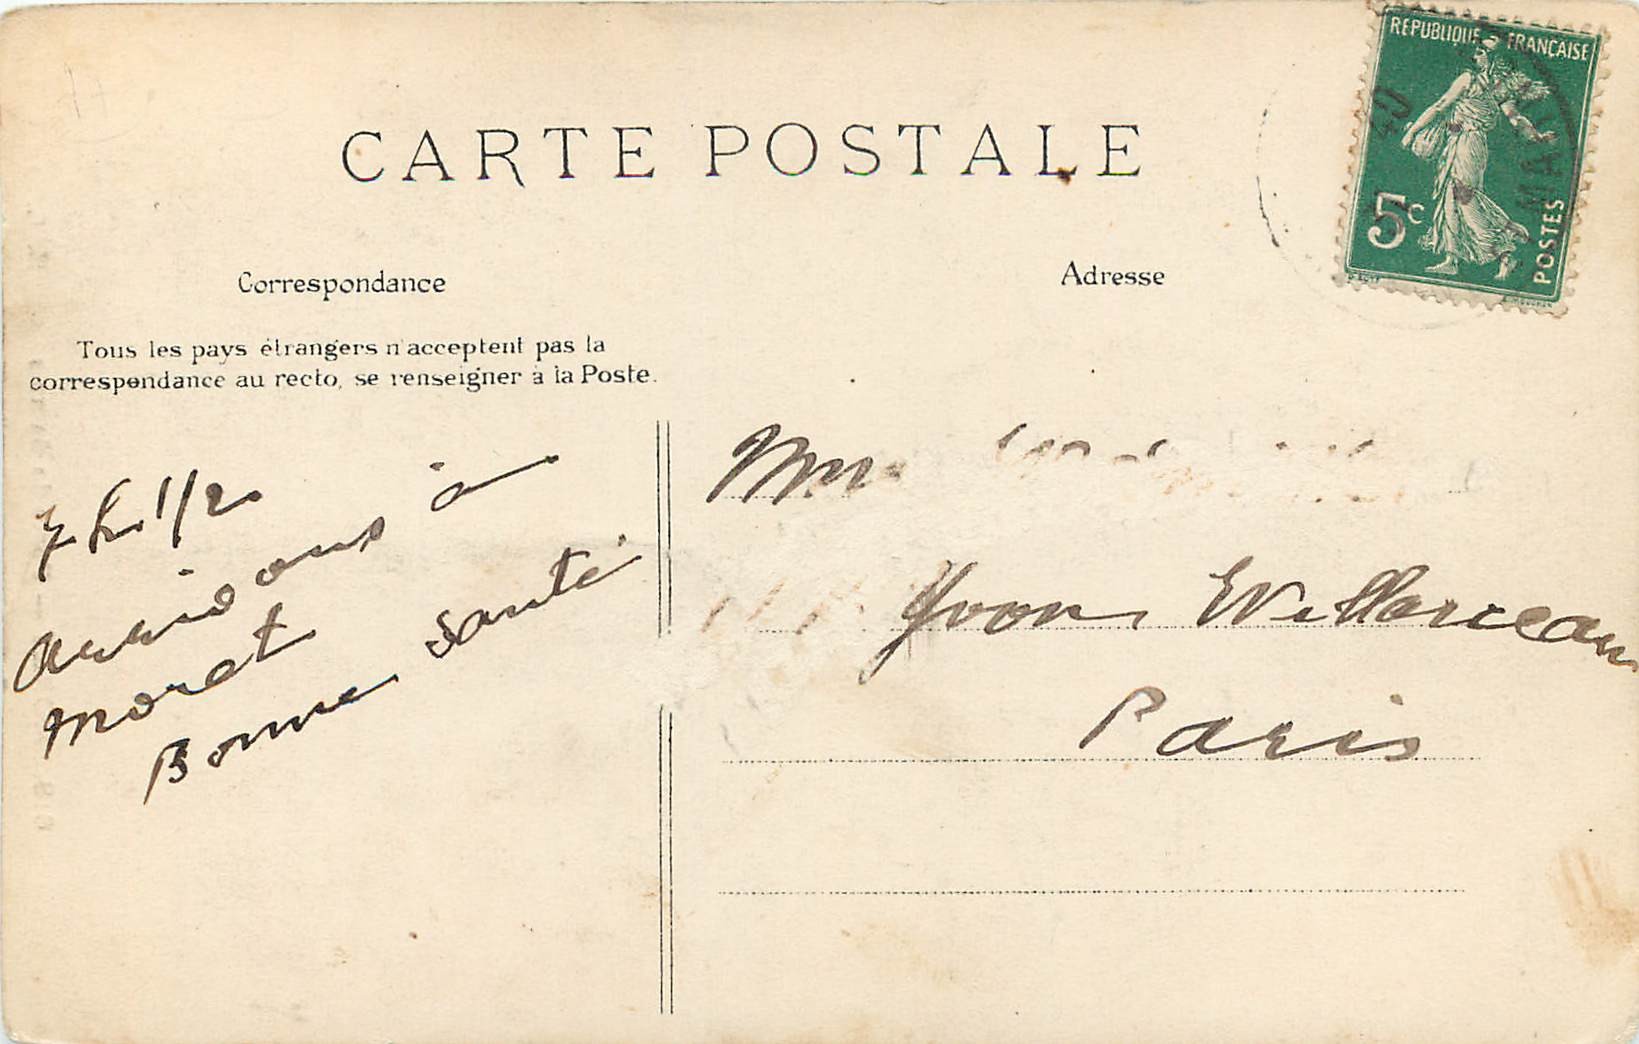 REPUBLIQUE FRANÇAISE
5c
POSTES
CARTE POSTALE
Correspondance
Adresse
Tous les pays étrangers n'acceptent pas la
correspondance au recto, se renseigner à la Poste.
7 h. 1/2
arrivons à
Moret
Bonne santé
Mme
Yvon
Paris